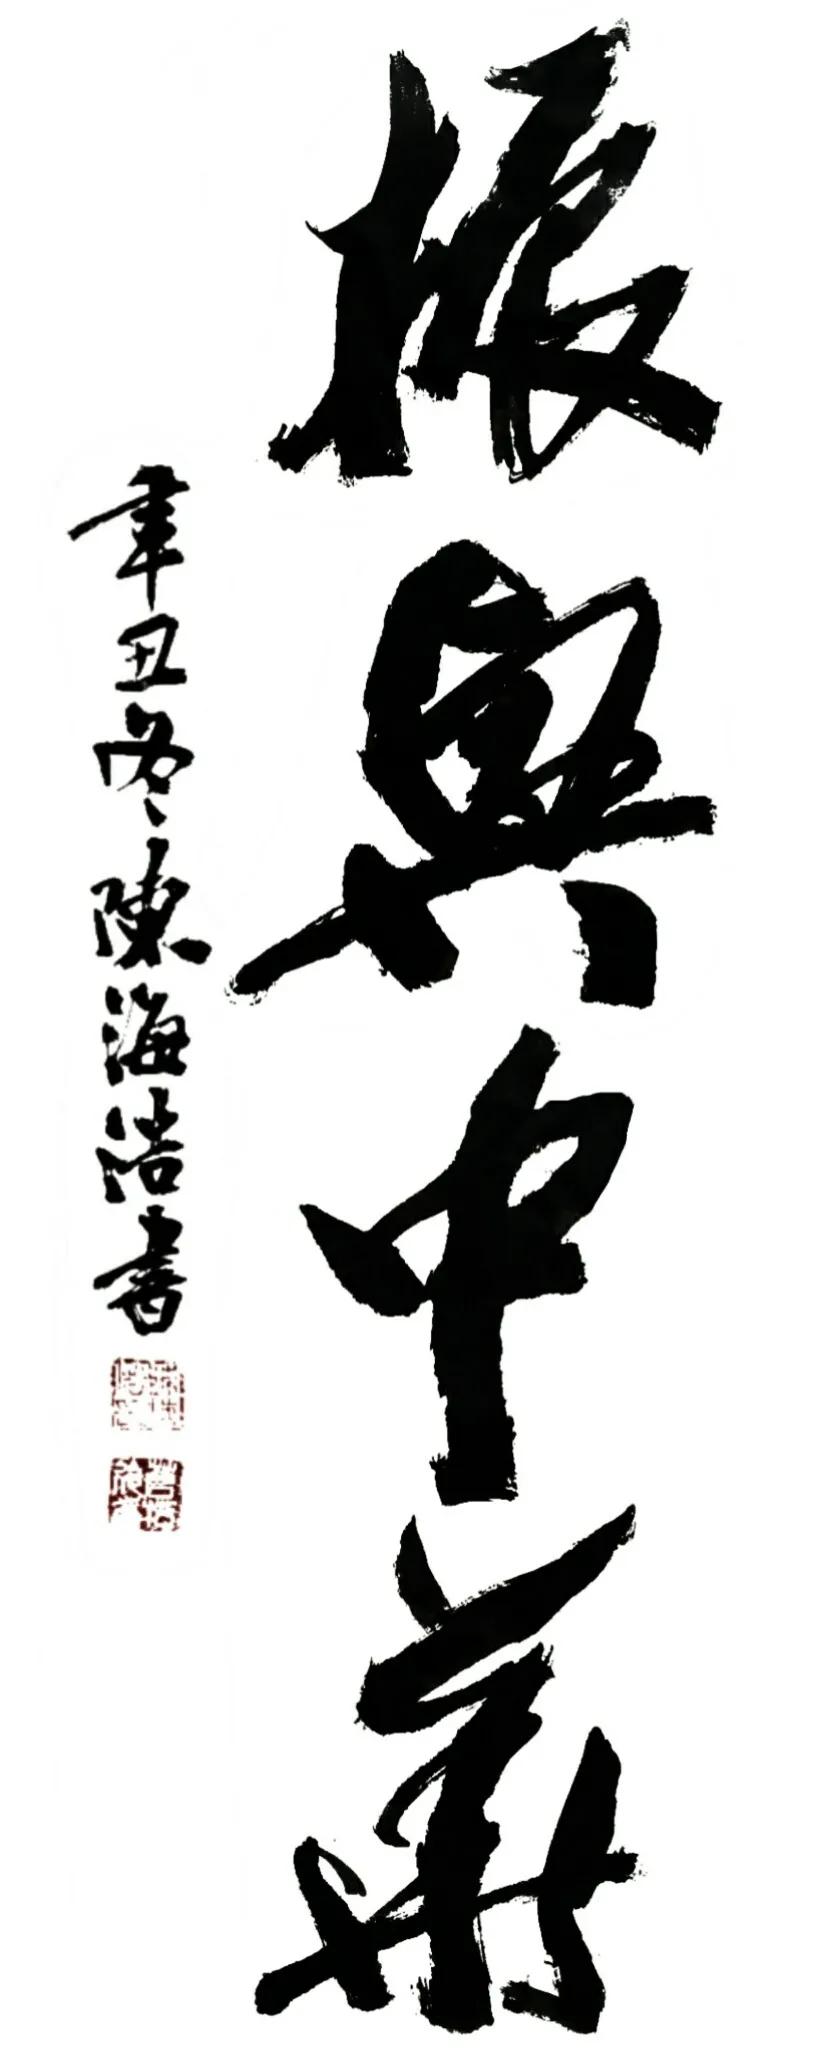 振興中華
辛丑冬陳海浩書